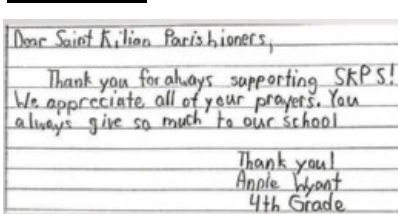 Dear Saint Kilian Parishioners,
Thank you for always supporting SKPS!
We appreciate all of your prayers. You
always give so much to our school
Thank you!
Annie Wyant
4th Grade